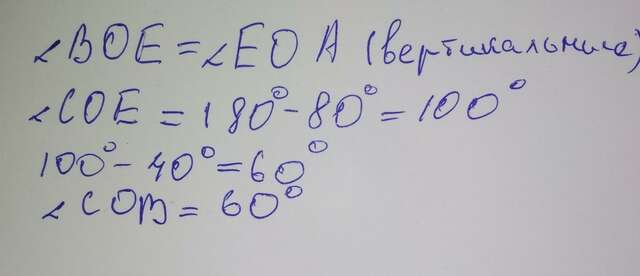 ∠BOE = ∠EOA (вертикальные)
∠COE = 180° - 80° = 100°
100° - 40° = 60°
∠COB = 60°